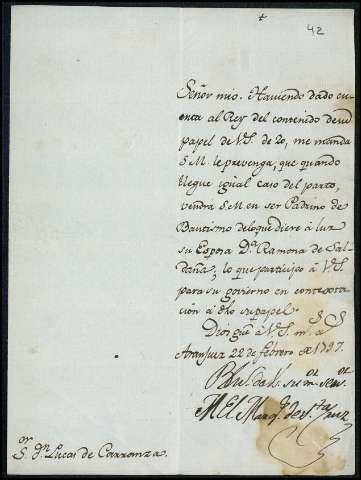 +
42
Señor mio. Haviendo dado cu-
enta al Rey del contenido de un
papel de V.S. de 20, me manda
S.M. le prevenga, que quando
llegue igual caso del parto,
vendra S.M. en ser Padrino de
Bautismo de lo que diere à luz
su Esposa Dª Ramona de Sal-
daña, lo que participo à V.S.
para su govierno en contexta-
ción à dho su papel.
Dios gue à V.S. ms as
Aranjuez 22 de febrero de 1797.
El Marqs de
Sor Dn Lucas de Carranza.